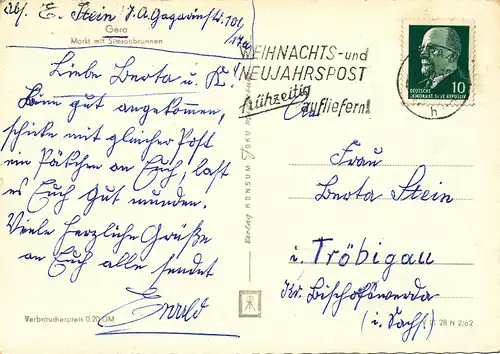 Abs. E. Stein, J. A. Gagarinstr. 101
/174
Gera
Markt mit Simsonbrunnen
Liebe Berta u. K.!
Bin gut angekommen,
schicke mit gleicher Post
ein Päkchen an Euch, laßt
es Euch gut munden.
Viele herzliche Grüße
an Euch alle sendet
Ewald
Verbraucherpreis 0,20 DM
Verlag KONSUM FOKU
WEIHNACHTS- und
NEUJAHRSPOST
frühzeitig
aufliefern!
DEUTSCHE
DEMOKRATISCHE REPUBLIK
10
h
An
Frau
Berta Stein
i. Tröbigau
Kr. Bischofswerda
(i. Sachs.)
28 N 2/62